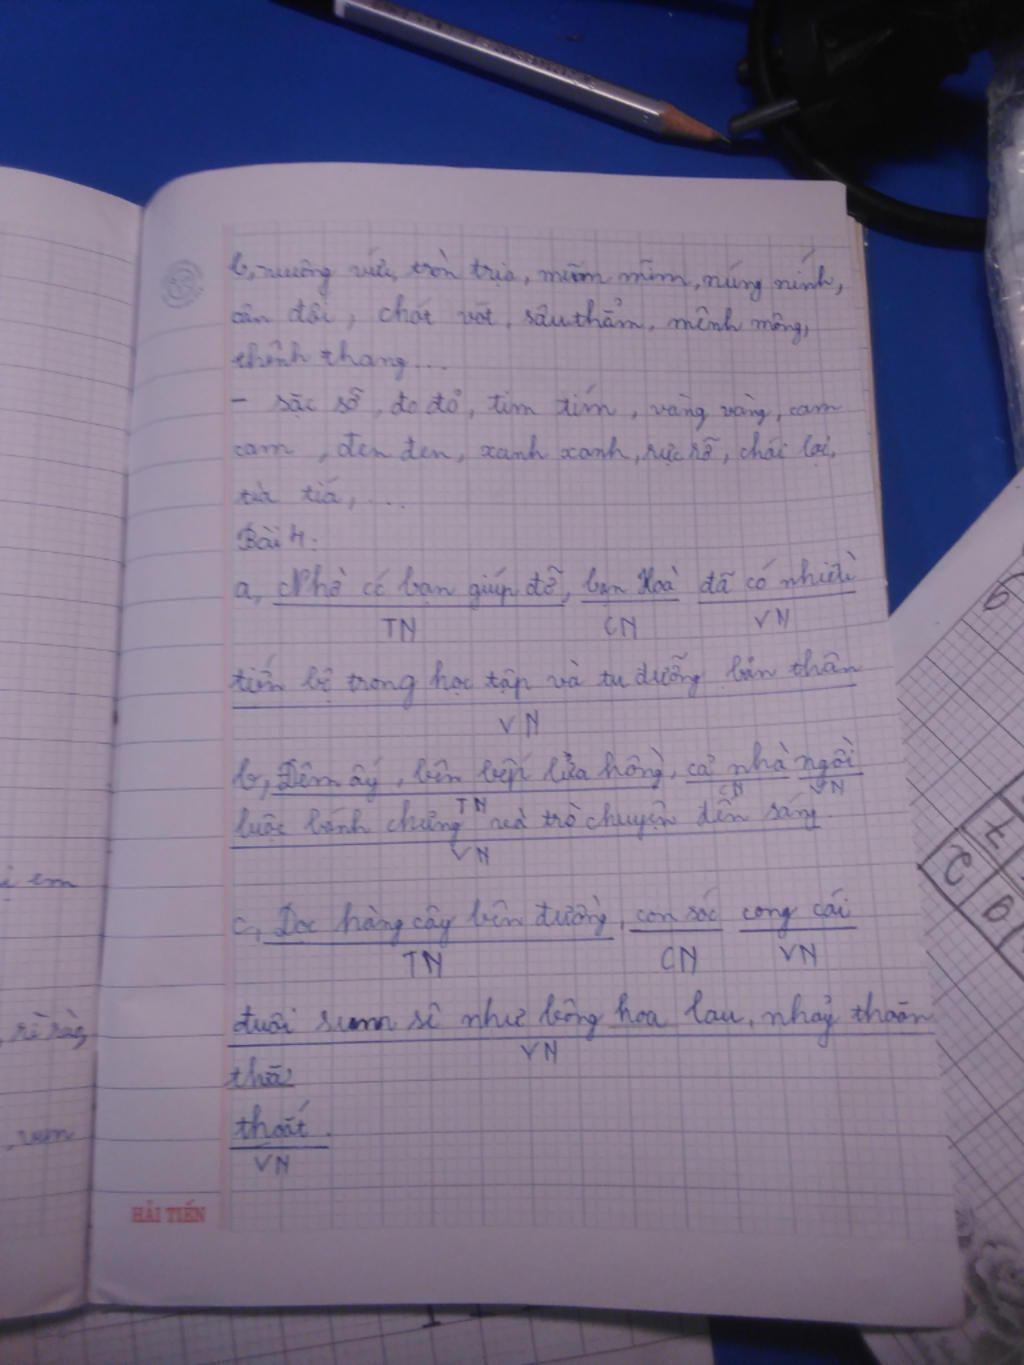 b, vuông vức, tròn trịa, mũm mĩm, núng nính,
cân đối, chót vót, sâu thẳm, mênh mông,
thênh thang...
- sặc sỡ, đo đỏ, tim tím, vàng vàng, cam
cam, đen đen, xanh xanh, rực rỡ, chói lọi,
tia tía,...
Bài 4:
a, Nhờ có bạn giúp đỡ, bạn Hoà đã có nhiều
TN CN VN
tiến bộ trong học tập và tu dưỡng bản thân
VN
b, Đêm ấy, bên bếp lửa hồng, cả nhà ngồi
TN CN VN
luộc bánh chưng và trò chuyện đến sáng.
VN
c, Dọc hàng cây bên đường, con sóc cong cái
TN CN VN
đuôi sum sê như bông hoa lau, nhảy thoăn
VN
thoă
thoắt.
VN
HẢI TIẾN
em
rì rào,